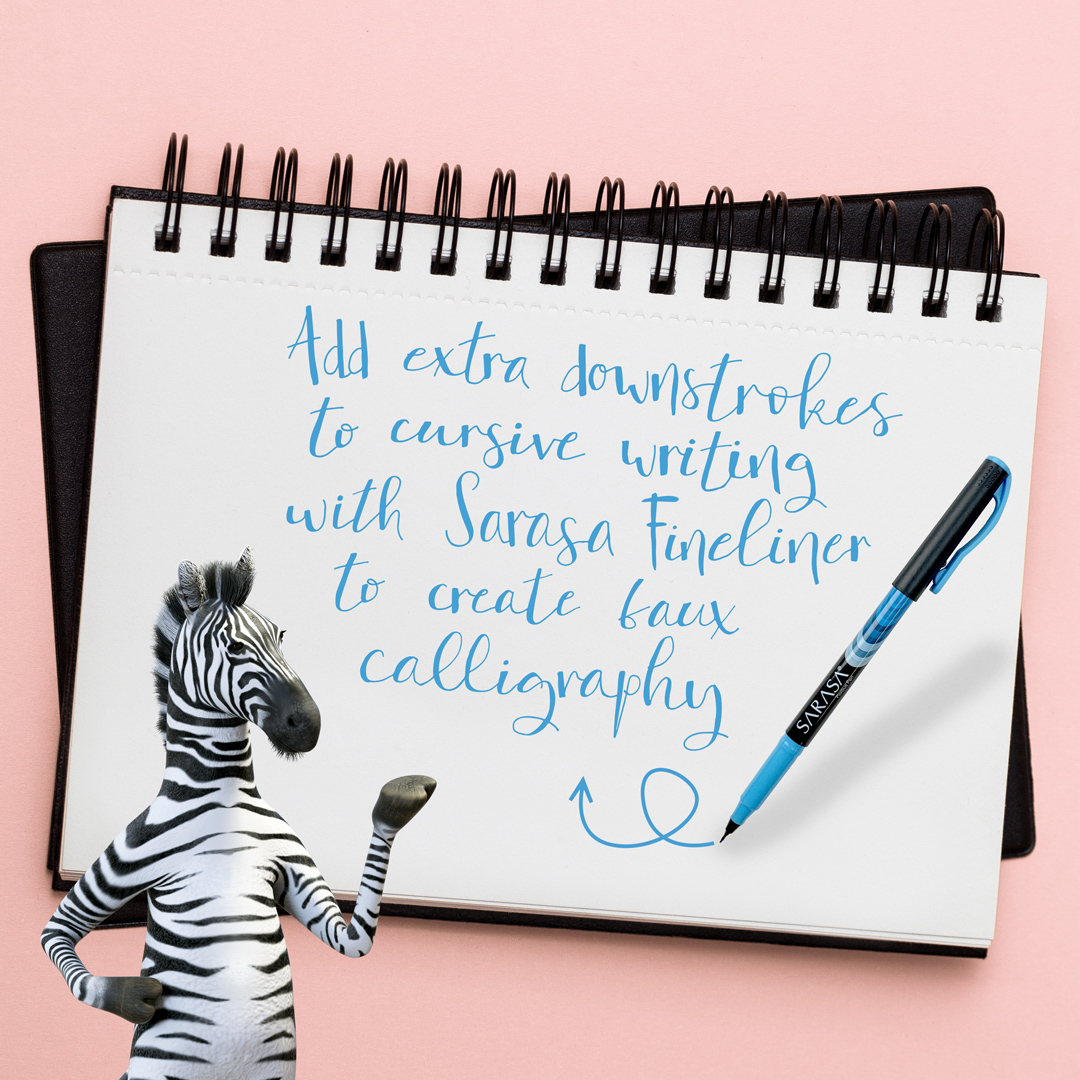 Add extra downstrokes
to cursive writing
with Sarasa Fineliner
to create faux
calligraphy
SARASA